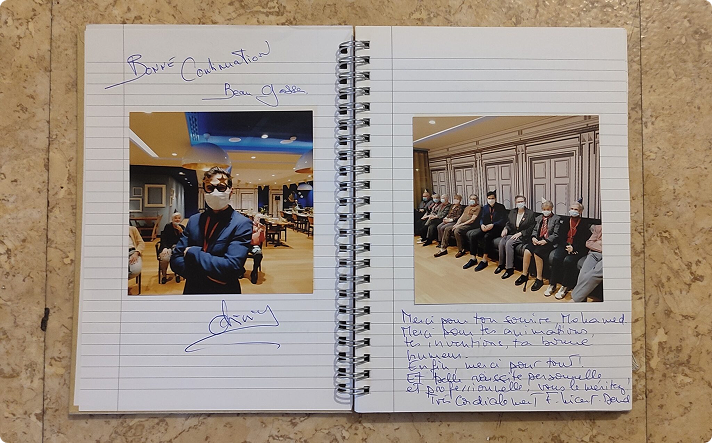 Bonne Continuation
Beau Gosse
Merci pour ton sourire, Mohamed.
Merci pour tes animations,
tes inventions, ta bonne
humeur.
Enfin, merci pour tout!
Et belle réussite personnelle
et professionnelle, vous le méritez!
Très Cordialement F.